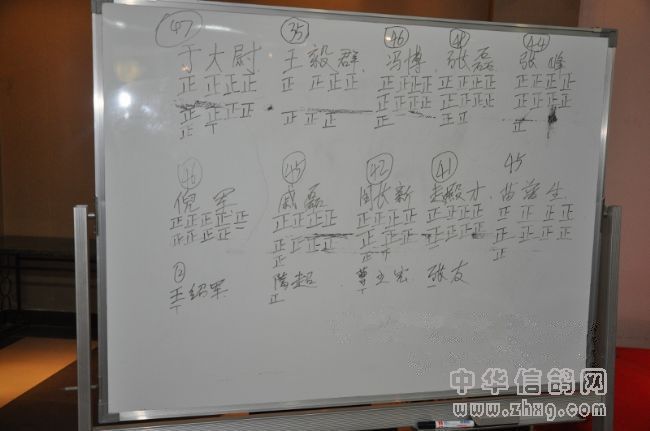 47 35 46 44
于大尉 王毅群 冯博 张磊 张峰
正 正正正 正 正正正 正正正正 正正正正 正正正正
正 正正正 正 正正 正正正正 正正正正 正正正正
正 丅 正 正正 正
46 45 42 41 45
倪军 戚磊 周长新 殿才 苗 生
正正正正正 正正正正 正正正正 正正正正 正 正 正 正
正正正正 正正正正 正正正正 正正正正 正 正 正 正
正 正 正
②
王绍军 隋超 曹立宏 张友
丅 正 丅 一
中华信鸽网
www.zhxg.com